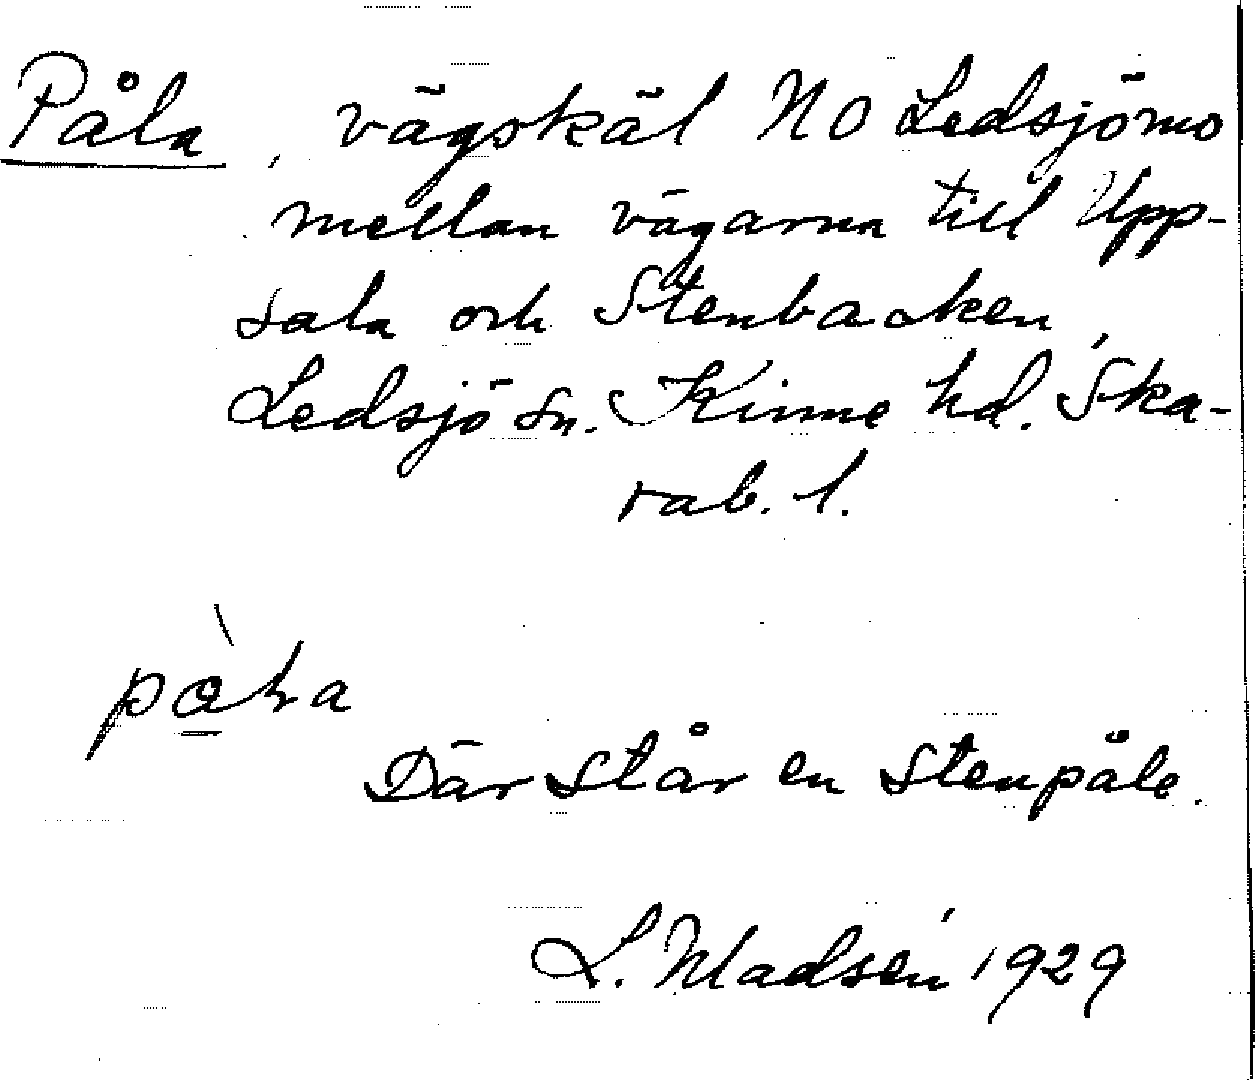 Påla, vägskäl NO Ledsjömo
mellan vägarna till Upp-
sala och Stenbacken,
Ledsjö sn. Kinne hd. Ska-
rab. l.
Där står en stenpåle.
L. Madsén 1929